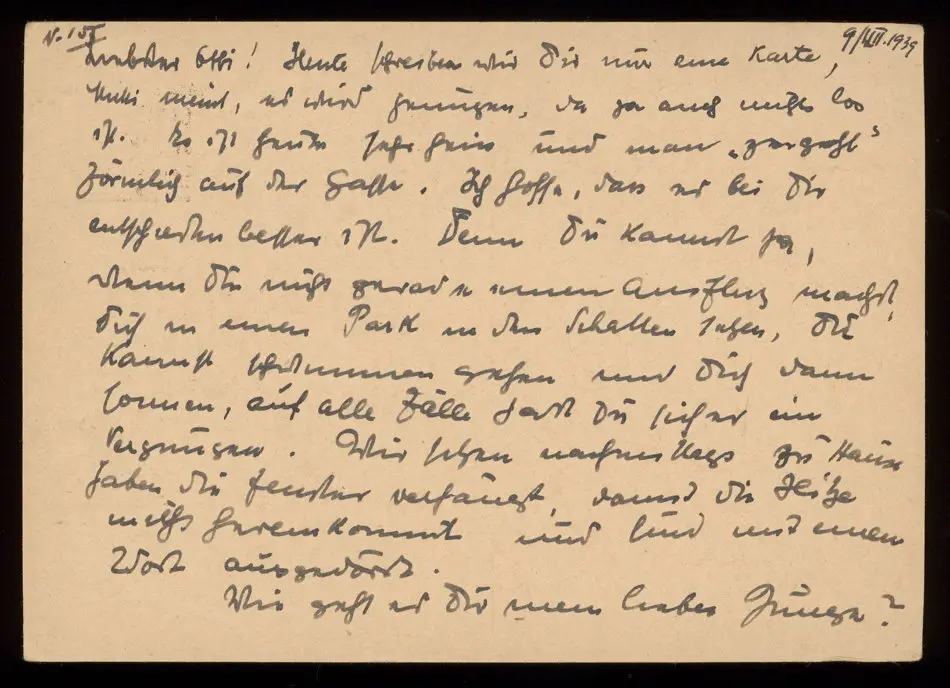 9/VIII.1939
Liebster Otti! Heute schreiben wir Dir nur eine Karte,
Muki meint, es wird genügen, da ja auch nichts los
ist. Es ist heute sehr heiss und man „zergeht"
förmlich auf der Gasse. Ich hoffe, dass es bei Dir
entschieden besser ist. Denn Du kannst ja,
wenn Du nicht gerade einen Ausflug machst,
Dich in einen Park in den Schatten setzen, Du
kannst schwimmen gehen und Dich dann
sonnen, auf alle Fälle hast Du sicher ein
Vergnügen. Wir sitzen nachmittags zu Hause
haben die Fenster verhängt, damit die Hitze
nicht hereinkommt und sind mit einem
Wort ausgedörrt.
Wie geht es Dir mein lieber Junge?